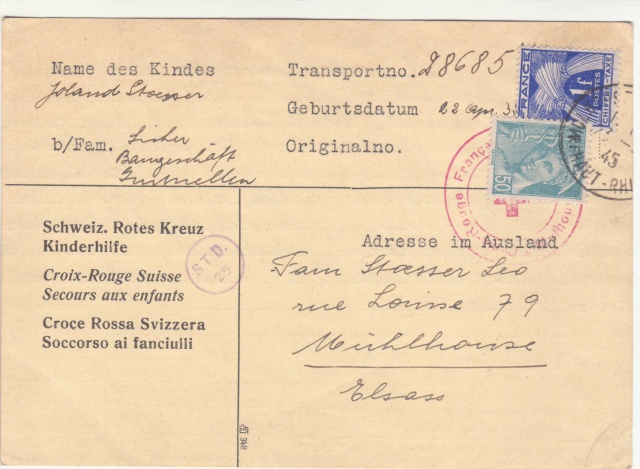 Name des Kindes
Joland Stoesser
b/Fam. Sicher
Baugeschäft
Gurtnellen
Transportno. 28685
Geburtsdatum 22 Apr. 3
Originalno.
FRANCE
1F
POSTES
CHIFFRE-TAXE
50
45
HAUT-RHIN
Schweiz. Rotes Kreuz
Kinderhilfe
Croix-Rouge Suisse
Secours aux enfants
Croce Rossa Svizzera
Soccorso ai fanciulli
S.T.D.
25
Adresse im Ausland
Fam Stoesser Leo
rue Louise 79
Mühlhouse
Elsass
348